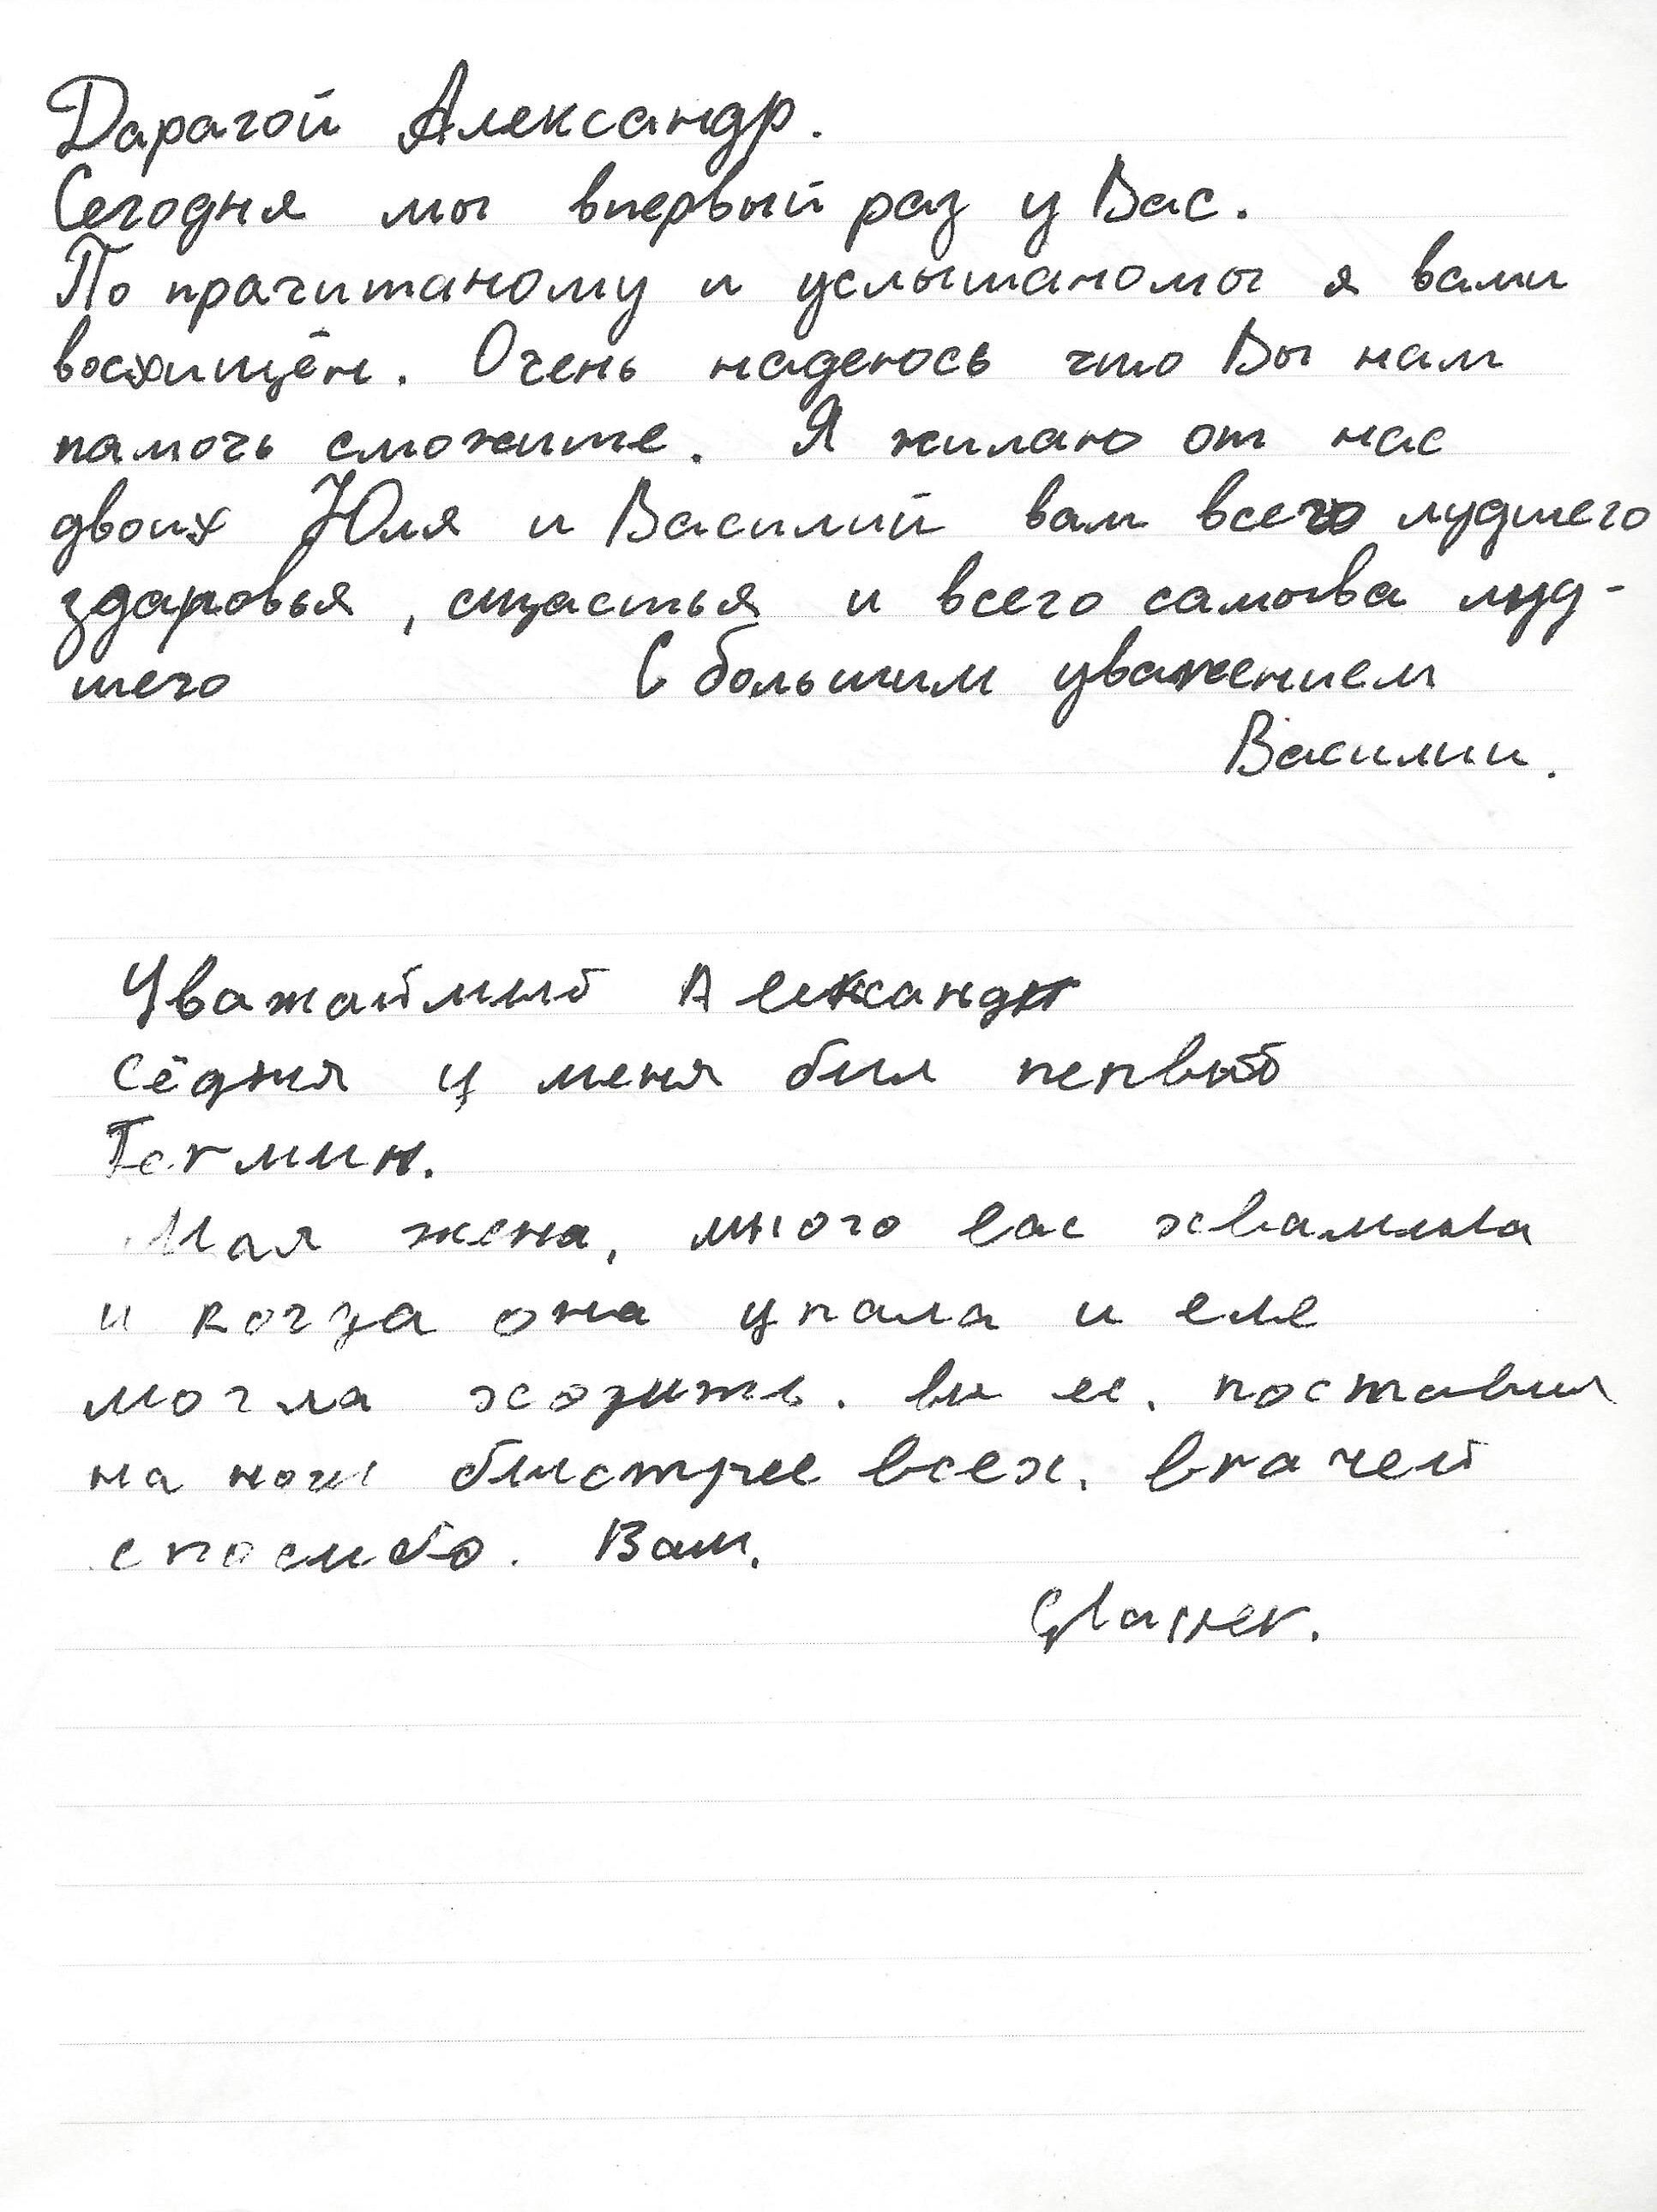 Дарагой Александр.
Сегодня мы впервый раз у Вас.
По прачитаному и услышаномы я вами
восхищён. Очень надеюсь что Вы нам
памочь сможите. Я жилаю от нас
двоих Юля и Василий вам всего лудшего
здаровья, сщастья и всего самыва луд-
шего С большим уважением
Василии.
Уважаймый Александр
Сёдня у меня бил первый
Термин.
Мая жена, много вас хвалила
и когда она упала и еле
могла ходить. ви ее. поставил
на ноги бистрее всех. врачей
спосибо. Вам.